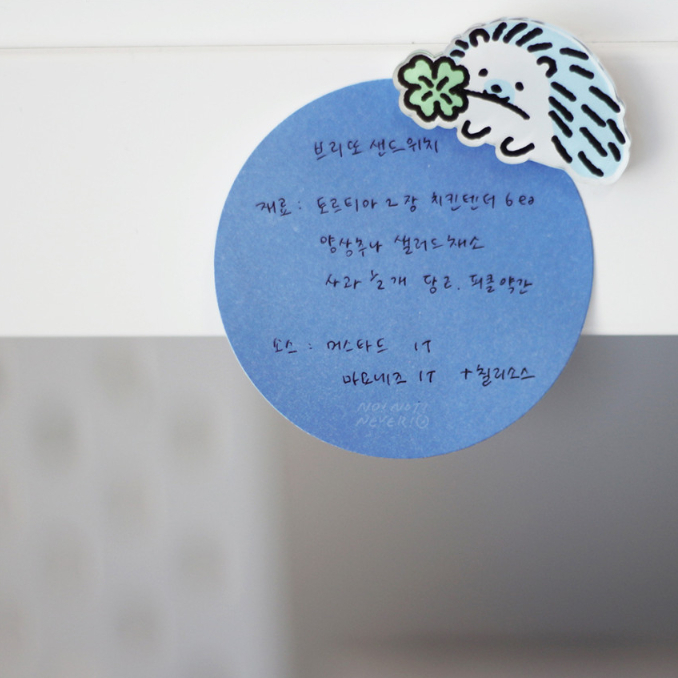 브리또 샌드위치
재료 : 토르티아 2장 치킨텐더 6ea
양상추나 샐러드채소
사과 1/2개 당근. 피클약간
소스 : 머스타드 1T
마요네즈 1T +칠리소스
NOT NOT!
NEVER!